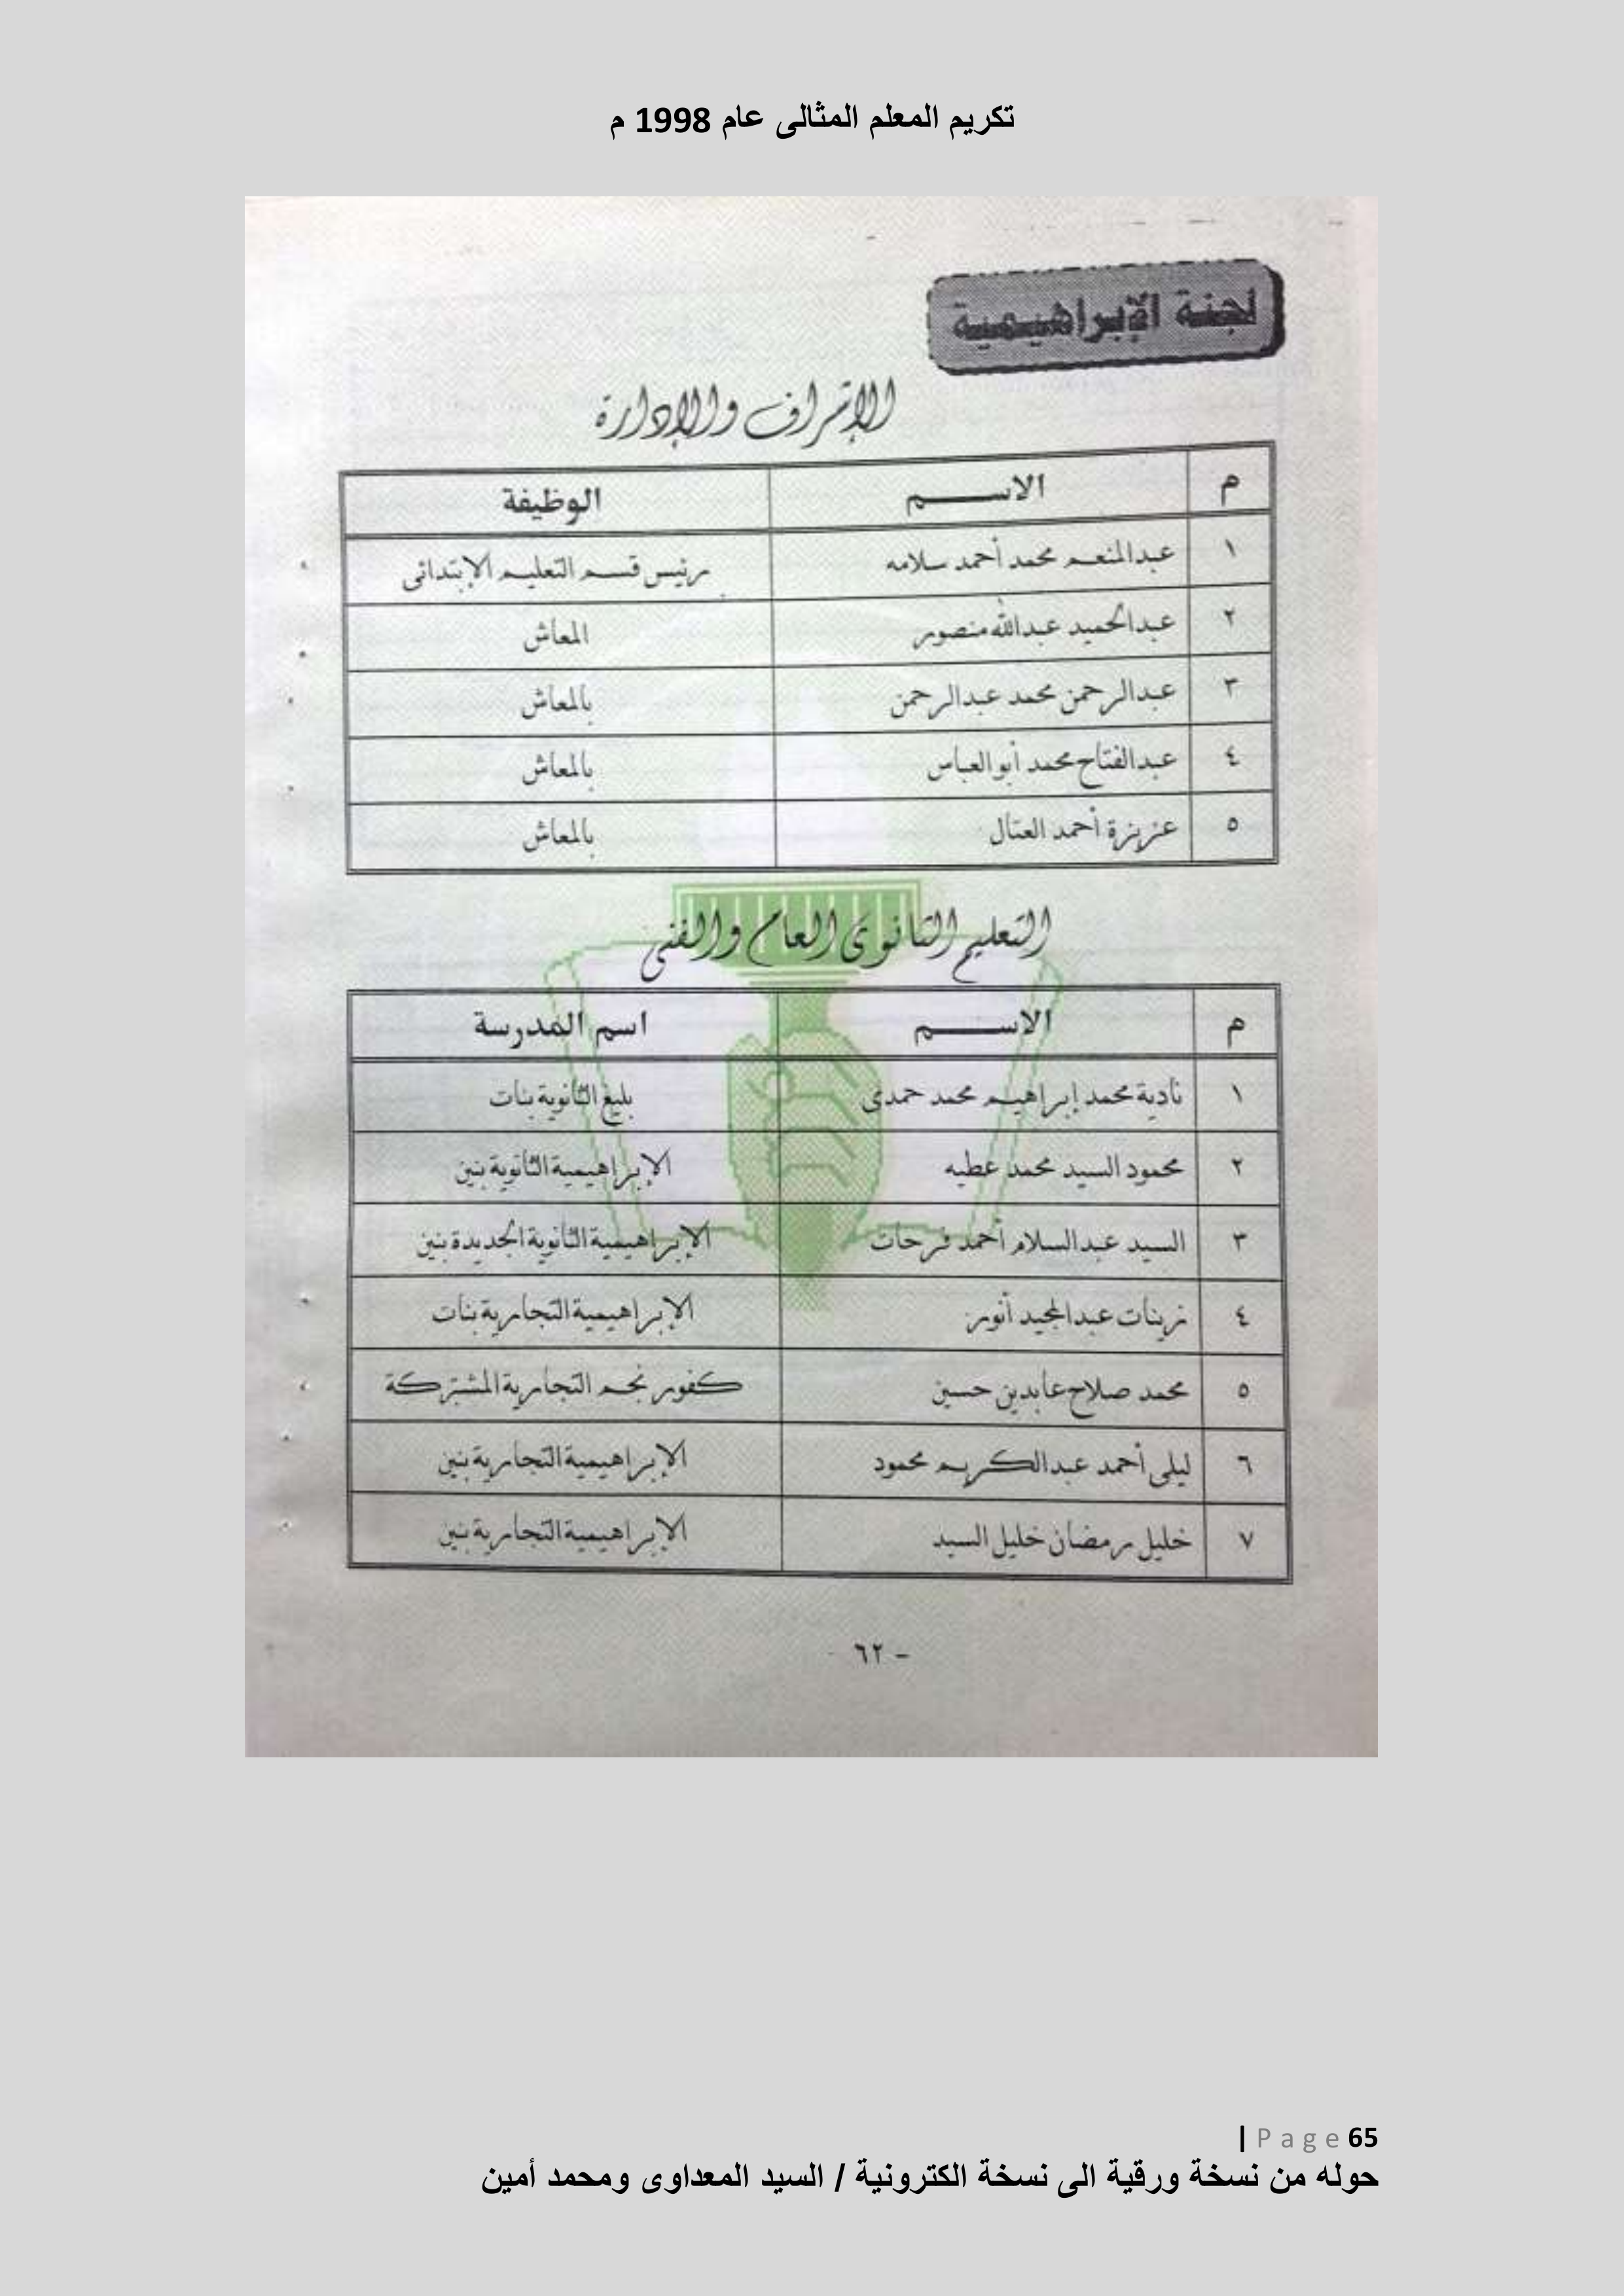 تكريم المعلم المثالى عام 1998 م
لجنة الإبراهيمية
الإشراف والإدارة
م الاسم الوظيفة
١ عبدالمنعم محمد أحمد سلامه رئيس قسم التعليم الإبتدائى
٢ عبدالحميد عبدالله منصور المعاش
٣ عبدالرحمن محمد عبدالرحمن بالمعاش
٤ عبدالفتاح محمد أبوالعباس بالمعاش
٥ عزيزة أحمد العتال بالمعاش
التعليم الثانوى العام والفنى
م الاسم اسم المدرسة
١ نادية محمد إبراهيم محمد حمدى بليغ الثانوية بنات
٢ محمود السيد محمد عطيه الإبراهيمية الثانوية بنين
٣ السيد عبدالسلام أحمد فرحات الإبراهيمية الثانوية الجديدة بنين
٤ زينات عبدالمجيد أنور الإبراهيمية التجارية بنات
٥ محمد صلاح عابدين حسين كفور نجم التجارية المشتركة
٦ ليلى أحمد عبدالكريم محمود الإبراهيمية التجارية بنين
٧ خليل رمضان خليل السيد الإبراهيمية التجارية بنين
- ٦٢ -
| Page 65
حوله من نسخة ورقية الى نسخة الكترونية / السيد المعداوى ومحمد أمين